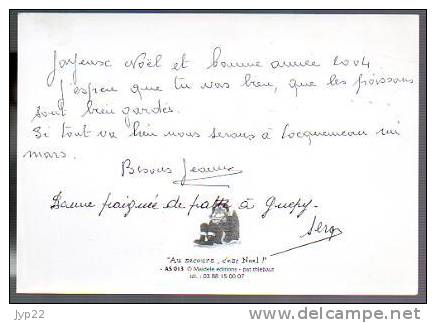 Joyeux Noël et bonne année 2004
J'espère que tu vas bien, que les poissons
sont bien gardés.
Si tout va bien nous serons à Locquemeau mi
mars.
Bisous Jeanne
Bonne poignée de patte à Guepy.
Serge
"Au secours, c'est Noel !"
- AS 013 © Mandele editions - pat thiebaut
tél. : 03 88 15 00 07
jyp22
delcampe.net